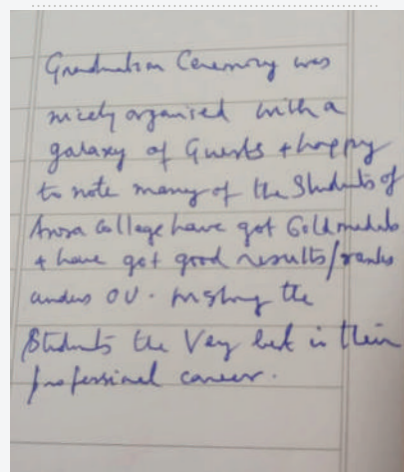 Graduation Ceremony was
nicely organised with a
galaxy of Guests + happy
to note many of the Students of
College have got Gold medals
+ have got good results/ranks
under OU. Wishing the
Students the Very best in their
professional career.